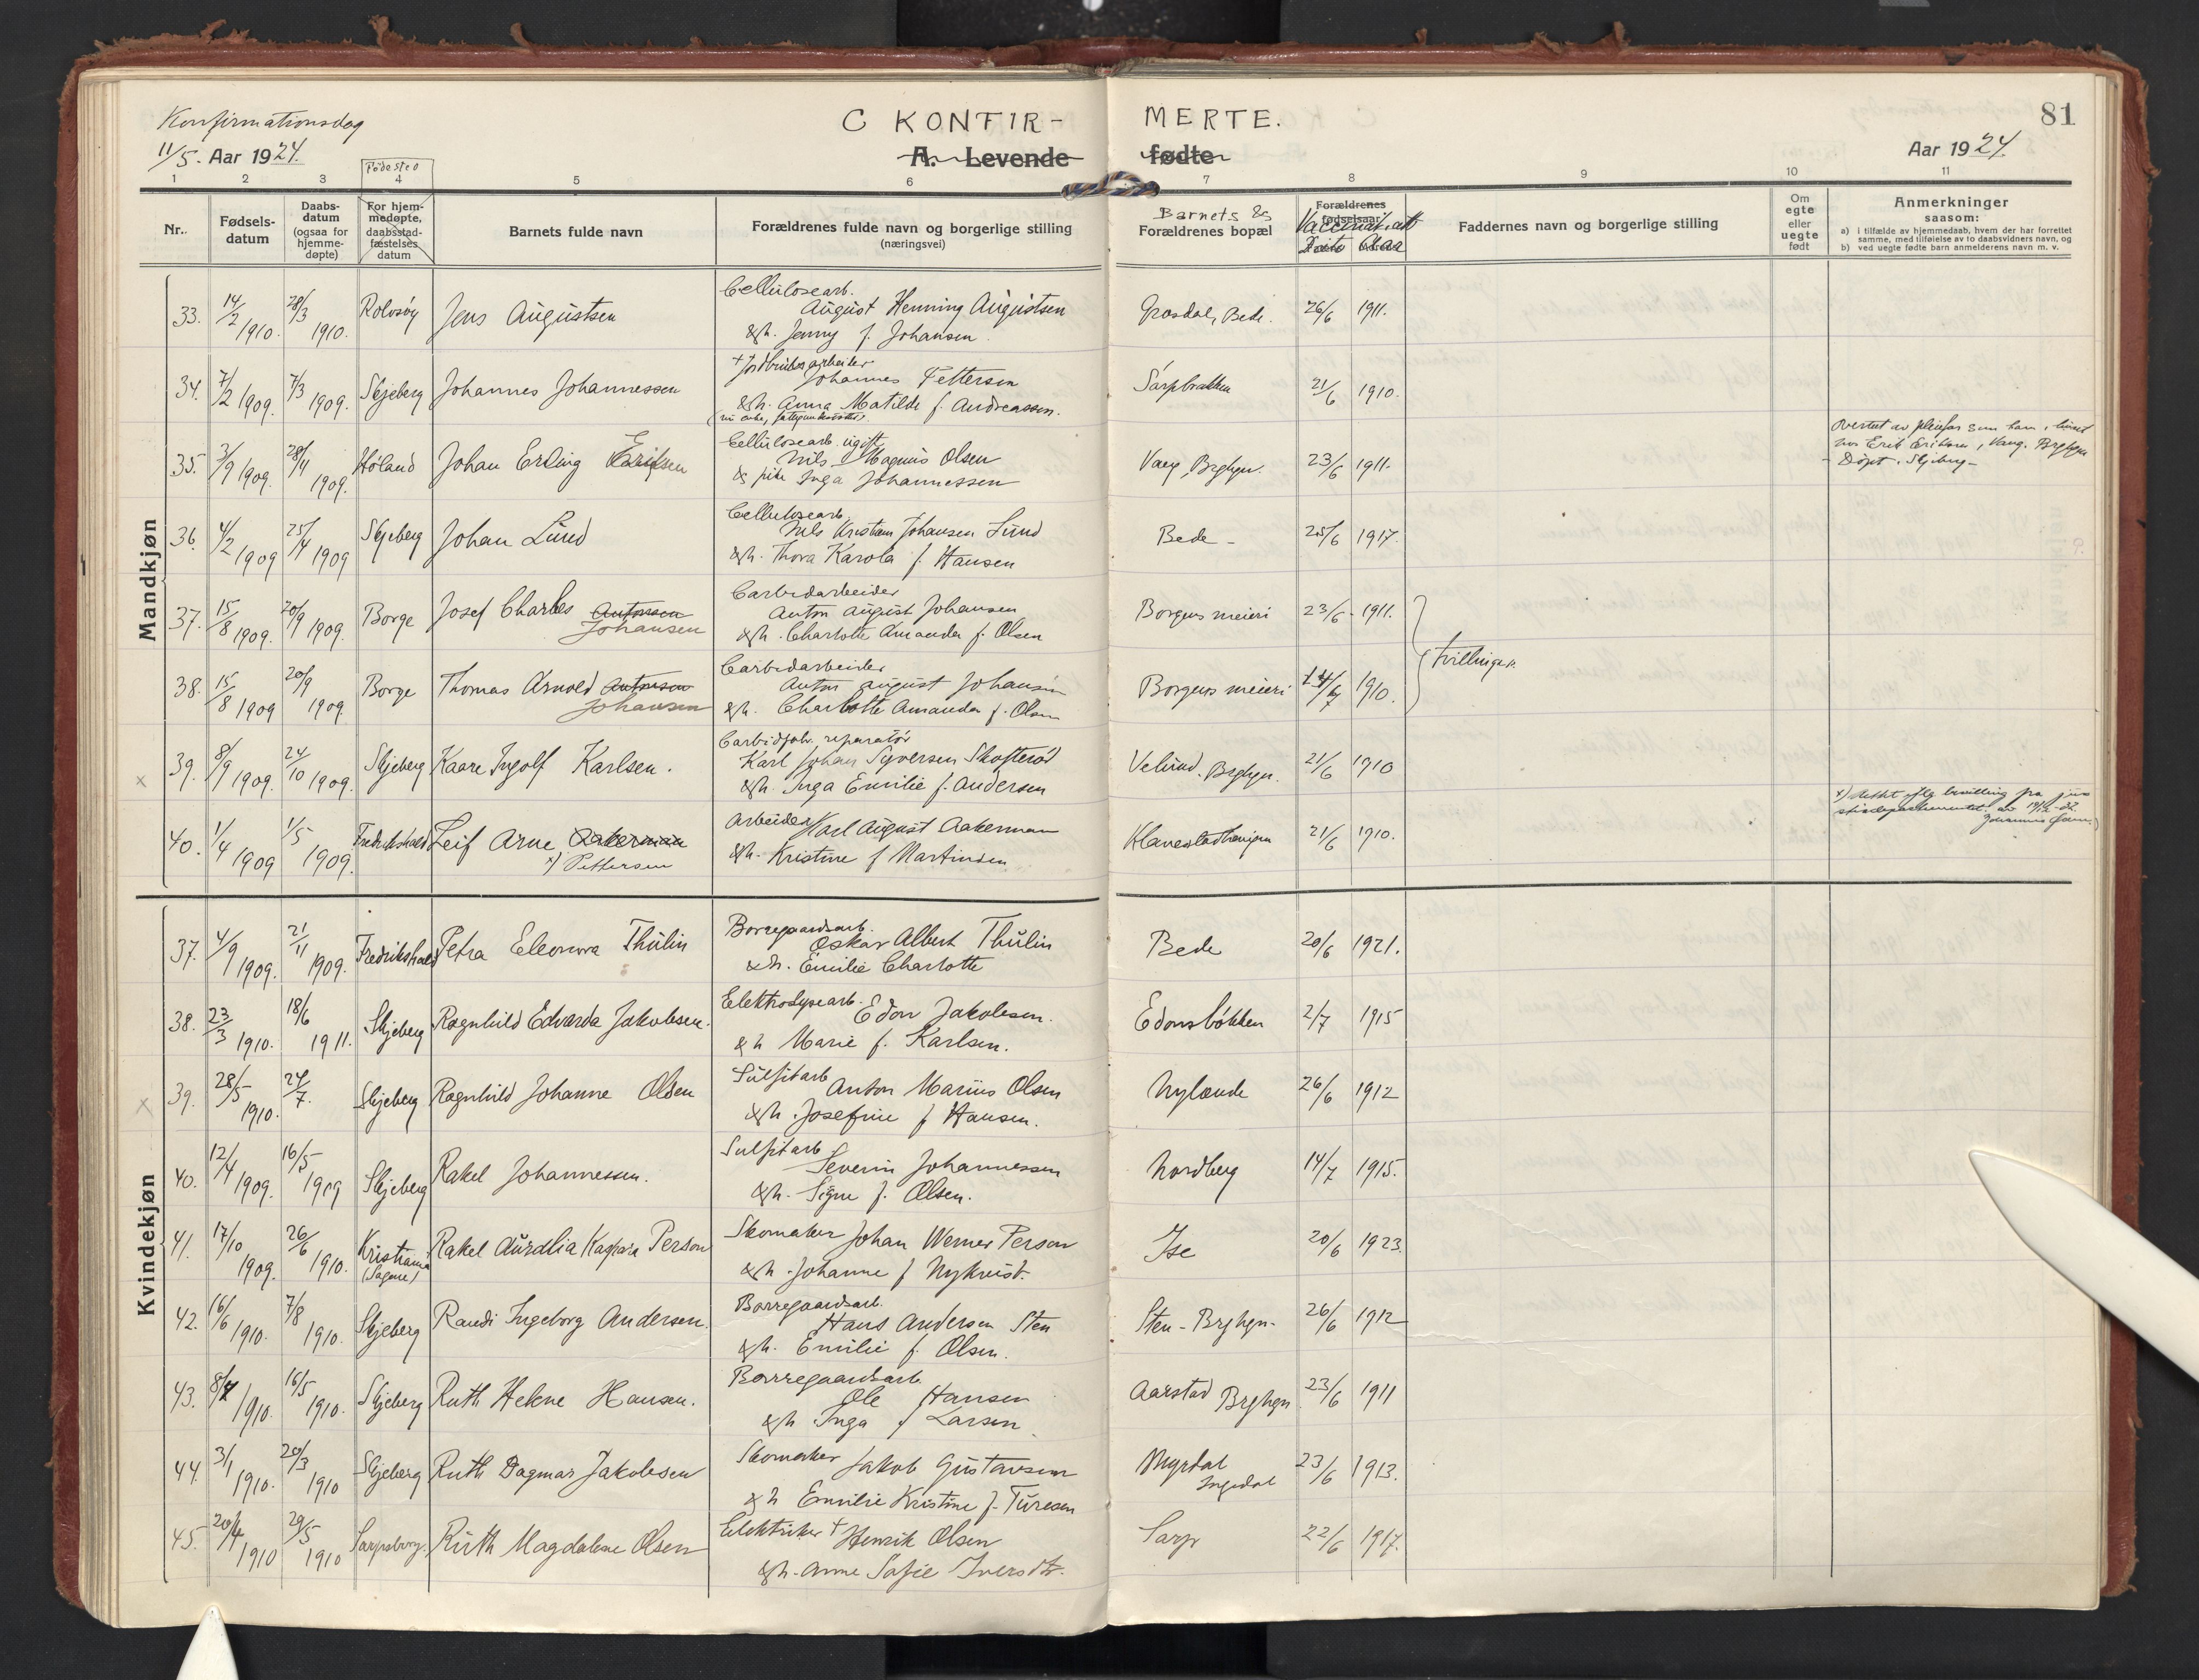 Konfirmationsdag
11/5. Aar 1924.
C KONFIR-
MERTE.
81
A. Levende
fødte
Aar 1924.
Fødested
1 2 3 4 5 6 7 8 9 10 11
Nr. Fødsels-datum Daabs-datum (ogsaa for hjemme-døpte) For hjem-medøpte, daabsstad-fæstelses datum Barnets fulde navn Forældrenes fulde navn og borgerlige stilling (næringsvei)
Barnets &
Forældrenes bopæl Forældrenes fødselsaar Faddernes navn og borgerlige stilling Om egte eller uegte født Anmerkninger saasom:
a) i tilfælde av hjemmedaab, hvem der har forrettet samme, med tilføielse av to daabsvidners navn, og
b) ved uegte fødte barn anmelderens navn m. v.
Mandkjøn
Cellulosearb.
33. 14/2 1910. 28/3 1910. Rolvsøy Jens Augustsen August Henning Augustsen 26/6 1911.
&h. Jenny f. Johansen
+ Jordbruksarbeider
34. 7/2 1909. 7/3 1909. Skjeberg Johannes Johannessen Johannes Pettersen Sarpbakken 21/6 1910.
&h. Anna Matilde f. Andreassen.
Cellulosearb. ugift
35. 2/9 1909. 28/11 1909. Høland Johan Erling Eriksen Nils Magnus Olsen 23/6 1911.
& pike Inga Johannessen
hos Erik Eriksen
Døpt i Skjeberg
Cellulosearb.
36. 4/2 1909 25/4 1909 Skjeberg Johan Lund Nils Kristian Johansen Lund Bede - 25/6 1917.
&h. Thora Karola f. Hansen
Carbidarbeider
37. 15/8 1909. 20/9 1909. Borge Josef Charles Antonsen Anton August Johansen Borgens meieri 23/6 - 1911.
Johansen &h. Charlotte Amanda f. Olsen
Tvillinger.
Carbidarbeider
38. 15/8 1909 20/9 1909. Borge Thomas Arnold Antonsen Anton August Johansen Borgens meieri 1910.
Johansen &h. Charlotte Amanda f. Olsen
Carbidfabr. reparatør
39. 8/9 1909. 24/10 1909. Skjeberg Kaare Ingolf Karlsen. Karl Johan Syversen Skofterød 21/6 1910
x &h. Inga Emilie f. Andersen
40. 1/4 1909 1/5 1909. Fredrikshald Leif Arne Aakerman Arbeider Karl August Aakerman 21/6 1910.
x) Pettersen &h. Kristine f Martinsen
Kvindekjøn
Borregaardsarb.
37. 4/9 1909. 21/11 1909. Fredrikshald Petra Eleonora Thulin Oskar Albert Thulin Bede 20/6 1921.
&h. Emilie Charlotte
38. 23/3 1910. 18/6 1911. Skjeberg Ragnhild Edvarda Jakobsen. Elektrolysearb. Edon Jakobsen. Edonsløkken 2/7 1915
&h Marie f. Karlsen.
39. 28/5 1910. 24/7. Skjeberg Ragnhild Johanne Olsen Sulfitarb Anton Marius Olsen Nylænde 26/6 1912
x &h. Josefine f Hansen.
Sulfitarb
40. 12/4 1909. 16/5 1909 Skjeberg Rakel Johannessen. Severin Johannessen Nordberg 14/7 1915.
&h. Signe f. Olsen.
41. 17/10 1909. 26/6 1910. Kristiania (Sagene) Rakel Aurdlia Kaspara Person Skomaker Johan Werner Person Ise 20/6 1923.
&h. Johanne f Nykvist.
Borregaardsarb.
42. 16/6 1910. 7/8 1910. Skjeberg Randi Ingeborg Andersen. Hans Andersen Sten Sten - Brghgn - 26/6 1912
&h. Emilie f. Olsen.
Borregaardsarb
43. 1910. 16/5 1910. Skjeberg Ruth Helene Hansen. Ole Hansen Aarstad Brghgn 23/6 1911
&h Inga f Larsen
44. 3/1 1910. 20/3 1910 Skjeberg Ruth Dagmar Jakobsen Skomaker Jakob Gustavsen Myrdal Ingedal 23/6 1913.
&h Emilie Kristine f. Turesen
45. 20/4 1910 29/5 1910 Sarpsborg. Ruth Magdalene Olsen Elektriker + Henrik Olsen Sarp 22/6 1917.
&h. Anne Sofie